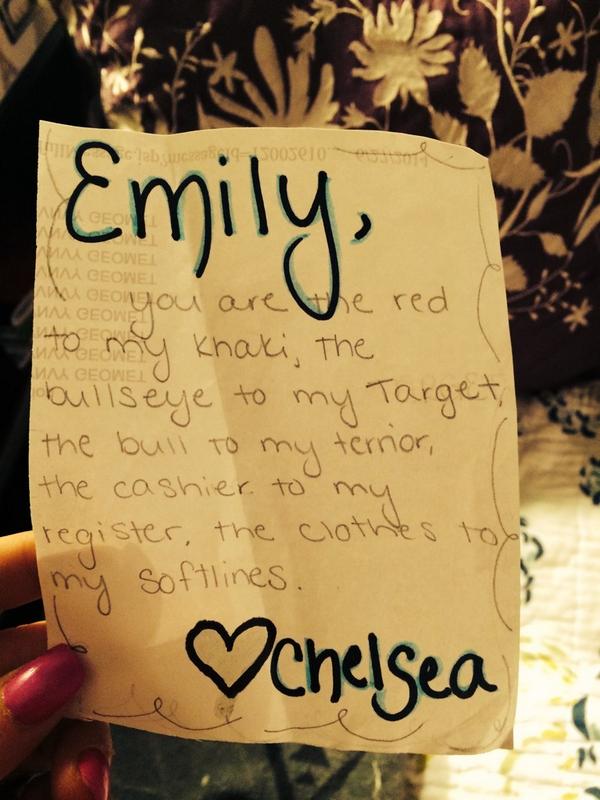 Emily,
you are the red
to my khaki, the
bullseye to my Target,
the bull to my terrior,
the cashier to my
register, the clothes to
my softlines.
♡Chelsea